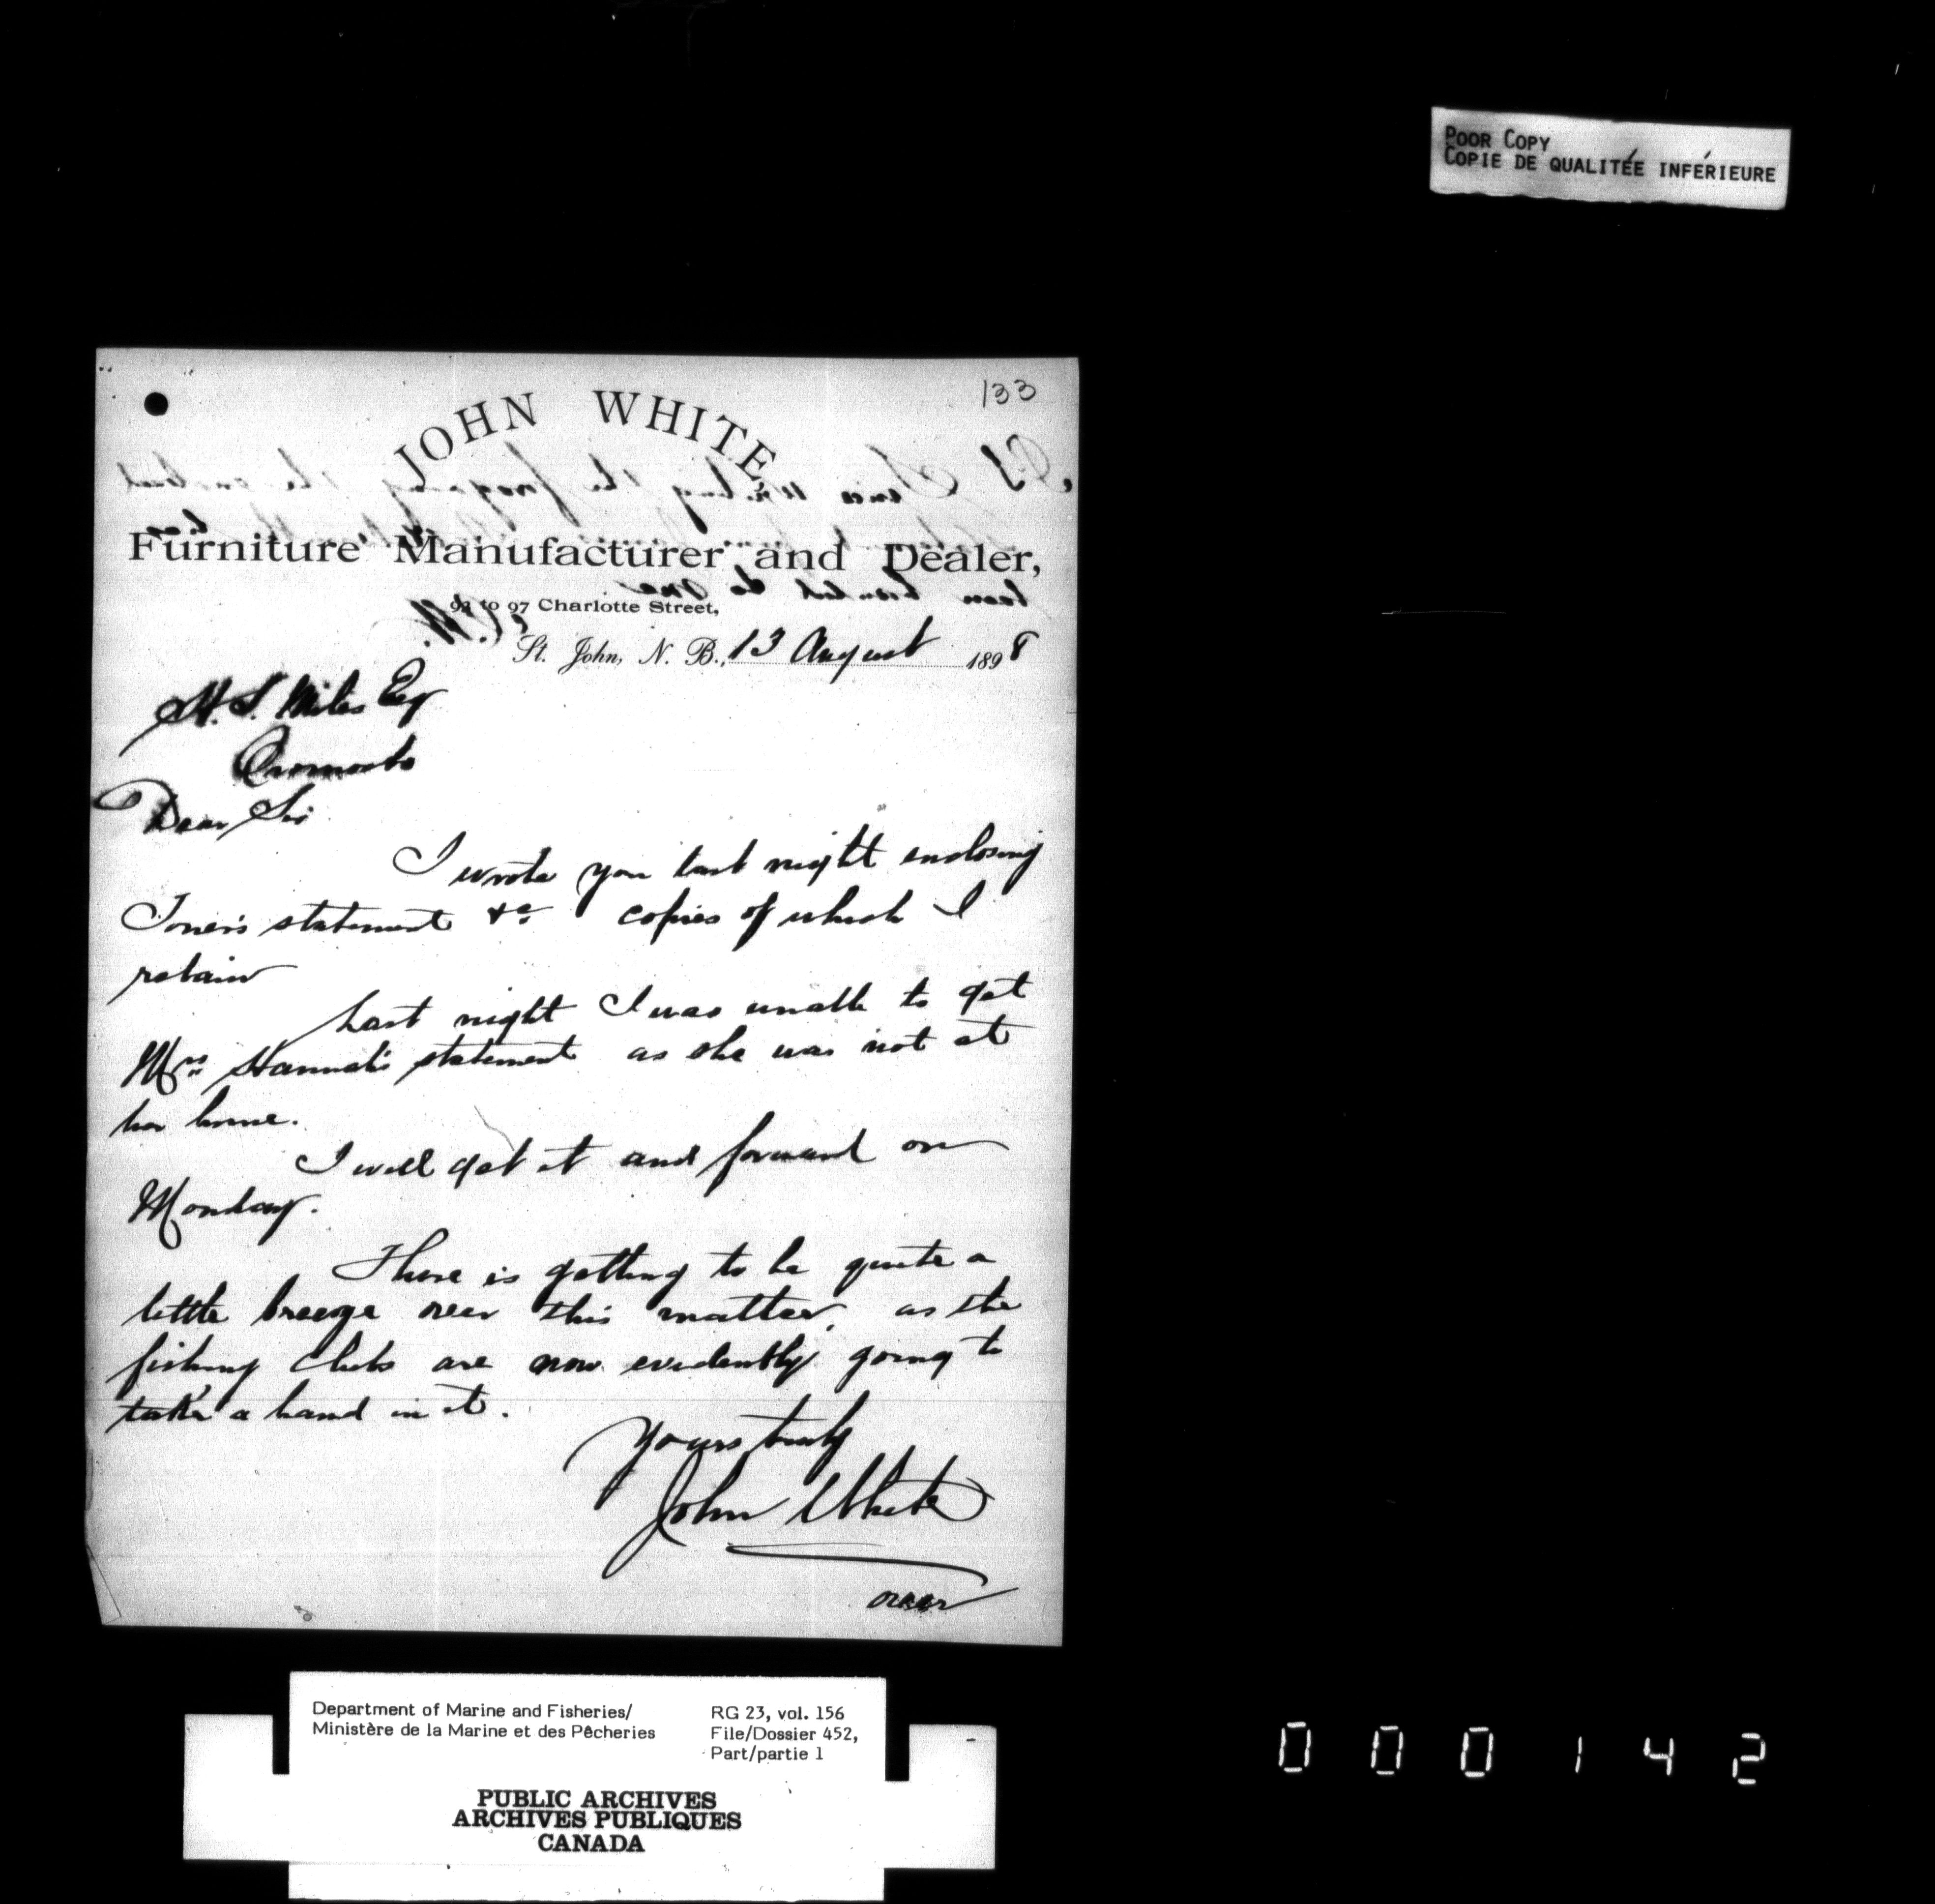 POOR COPY
COPIE DE QUALITÉE INFÉRIEURE
133
JOHN WHITE
Furniture Manufacturer and Dealer,
93 to 97 Charlotte Street,
St. John, N. B., 13 August 1898
H. S. Miles Esq
Oromocto
Dear Sir
I wrote you last night enclosing
statement &c copies of which I
retain
Last night I was unable to get
Mrs Hannah's statement as she was not at
her home.
I will get it and forward on
Monday.
There is getting to be quite a
little breeze over this matter, as the
fishing clubs are now evidently going to
take a hand in it.
Yours truly
John White
over
Department of Marine and Fisheries/
Ministère de la Marine et des Pêcheries
RG 23, vol. 156
File/Dossier 452,
Part/partie 1
PUBLIC ARCHIVES
ARCHIVES PUBLIQUES
CANADA
000142